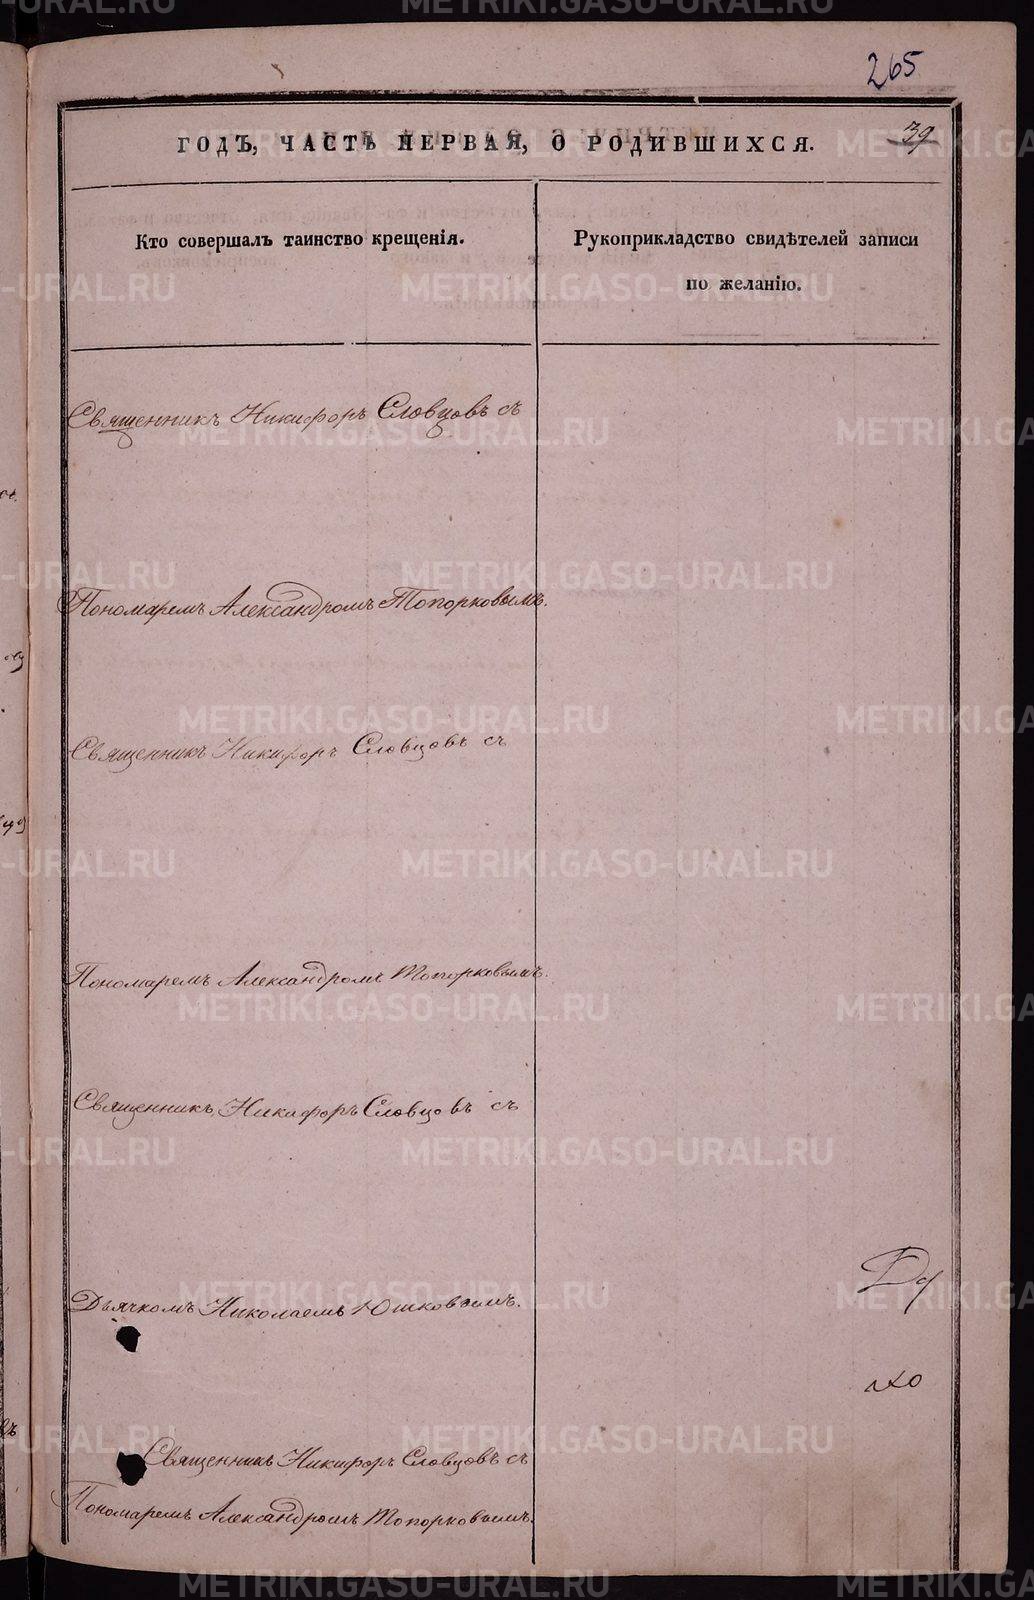 265
39
ГОДЪ, ЧАСТЬ ПЕРВАЯ, О РОДИВШИХСЯ.
Кто совершалъ таинство крещенія.
Рукоприкладство свидѣтелей записи
по желанію.
Священникъ Никифоръ Словцовъ съ
Пономаремъ Александромъ Топорковымъ.
Священникъ Никифоръ Словцовъ съ
Пономаремъ Александромъ Топорковымъ.
Священникъ Никифоръ Словцовъ съ
Дьячкомъ Николаемъ Юшковымъ.
Священникъ Никифоръ Словцовъ съ
Пономаремъ Александромъ Топорковымъ.
METRIKI.GASO-URAL.RU